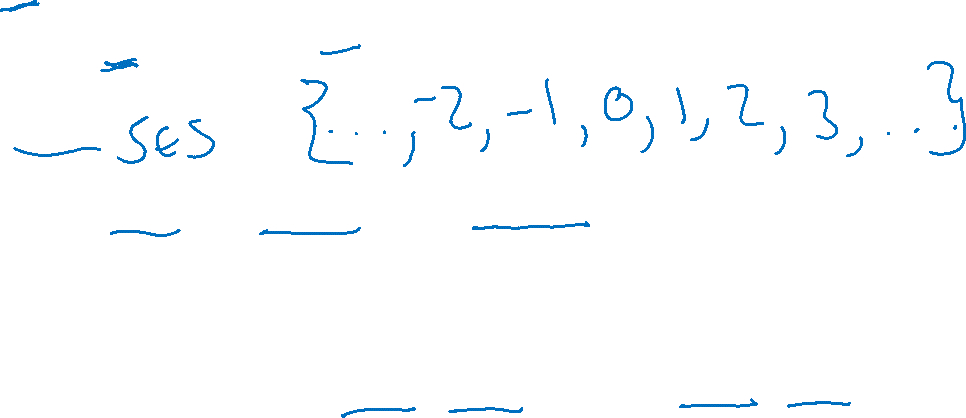 SES {...,-2,-1,0,1,2,3,...}